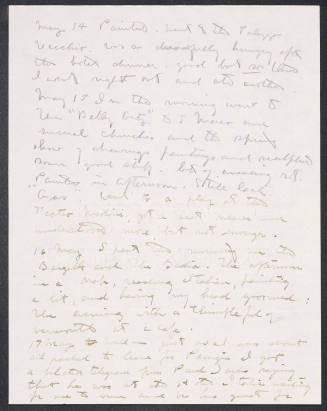 May 14 Painted. Went to the Palazzo
Vecchio. Was so dreadfully hungry after
the hotel dinner. good but so little
I went right out and ate another.
May 15 In the morning went to
the "Belle Arti" to S Marco and
several churches and the spring
show of drawings paintings and sculpture
some good stuff. lots of amusing rot.
Painted in afternoon. Still look
Went to a play at the
Teatro got a seat nearer and
understood more but not enough.
16 May. I spent the morning in the
Bargello and the Badia. The afternoon
in a reading Italian, painting
a bit, and having my head groomed:
The evening with a thimbleful of
vermouth at a cafe.
17 May just as I was about
all packed to leave for Perugia I got
a telegram from Paul saying
that he was at the and waiting
for me to come and be his guest for